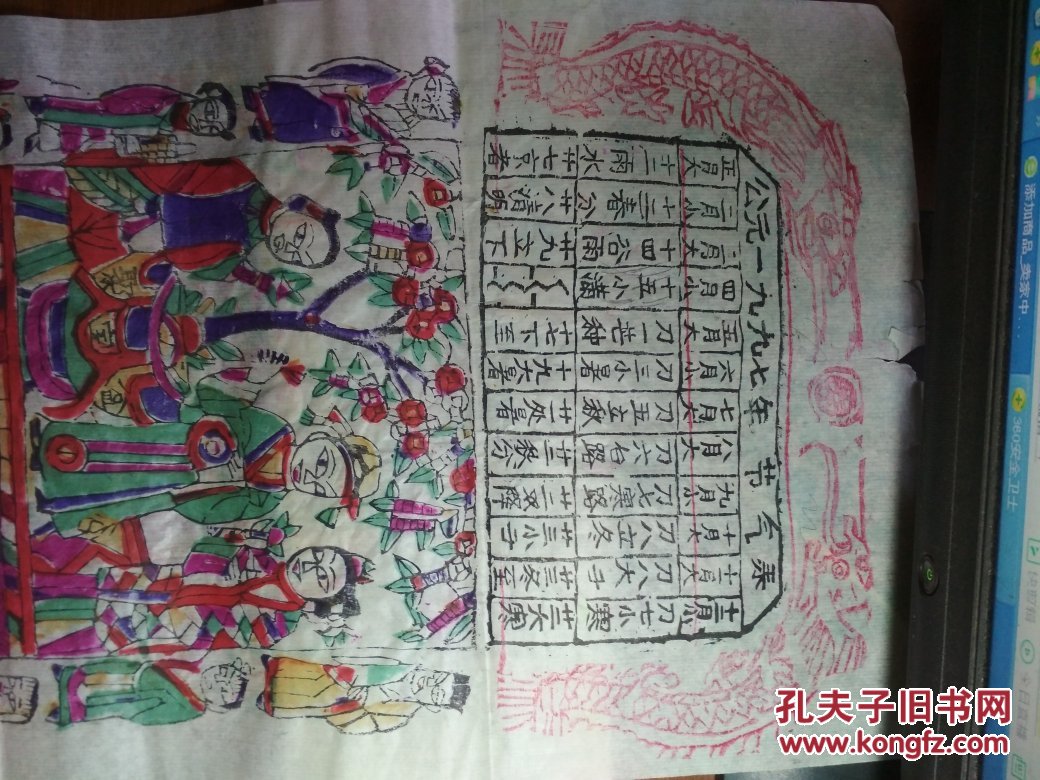 公元一九九七年 节气表
正月大 二月小 三月大 四月小 五月大 六月小 七月大 八月大 九月小 十月大 十一月大 十二月小
十二雨水 十三春分 十四谷雨 十五小满 刀一芒种 刀三小暑 刀五立秋 刀六白路 刀七寒路 刀八立冬 刀八大子 刀七小寒
廿七京者 廿八清明 廿九立下 十七下至 十九大暑 廿一处暑 廿三秋分 廿二双降 廿三小子 廿三冬至 廿二大寒
聚宝盆
添加商品_卖家中...
360安全卫士
孔夫子旧书网
www.kongfz.com